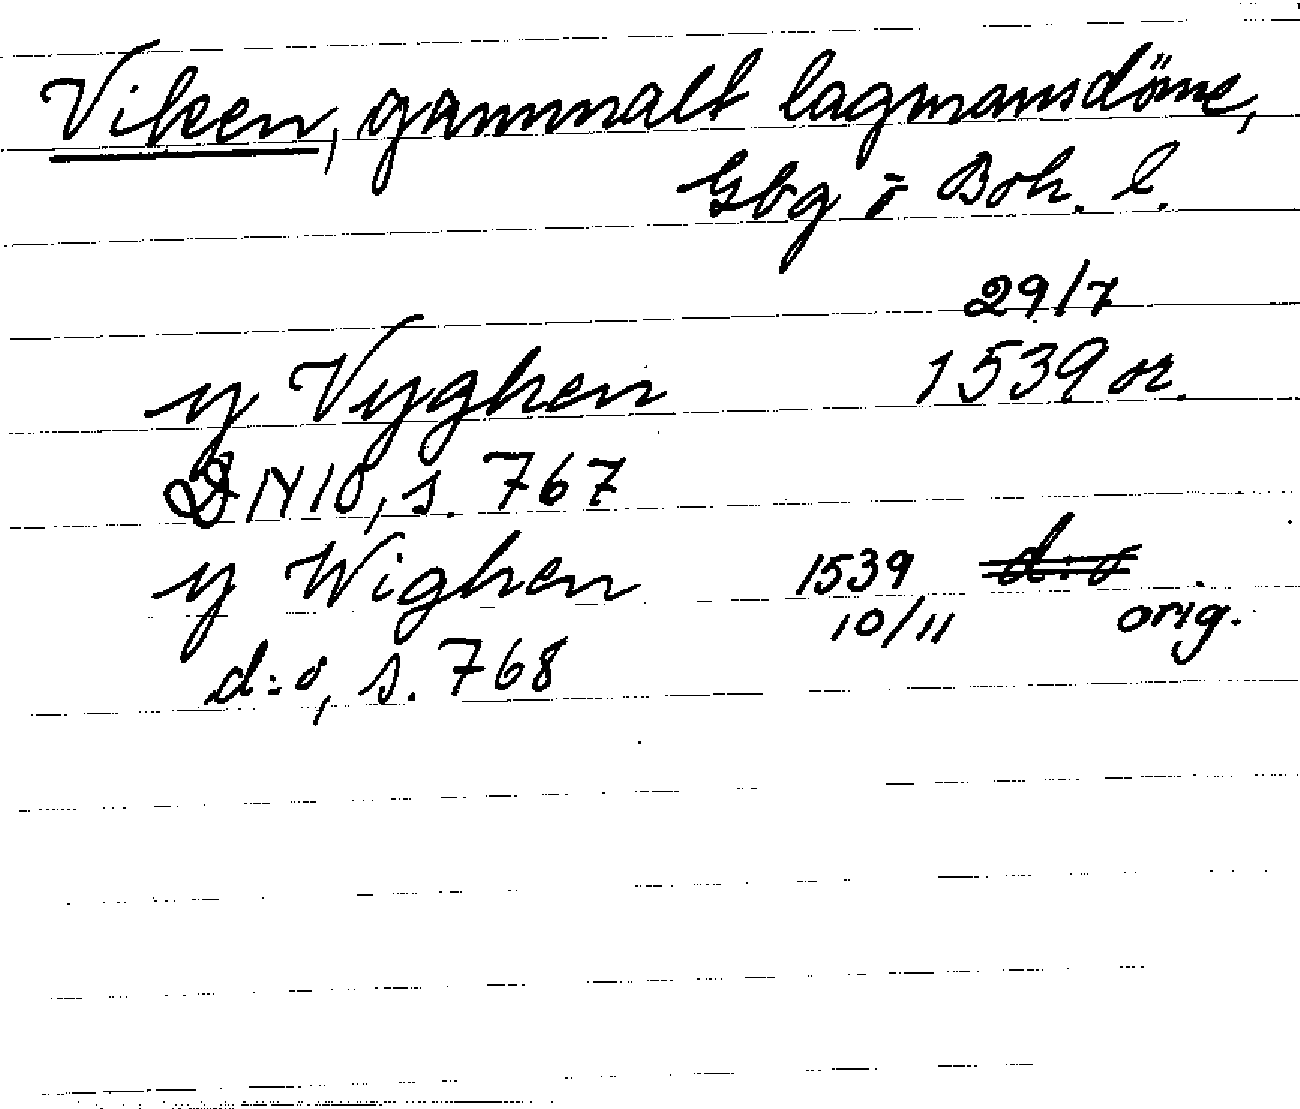 Viken, gammalt lagmansdöme,
Gbg o Boh. l.
29/7
y Vyghen 1539 or.
DN 10, s. 767
y Wighen 1539 d:o
10/11 orig.
d:o, s. 768